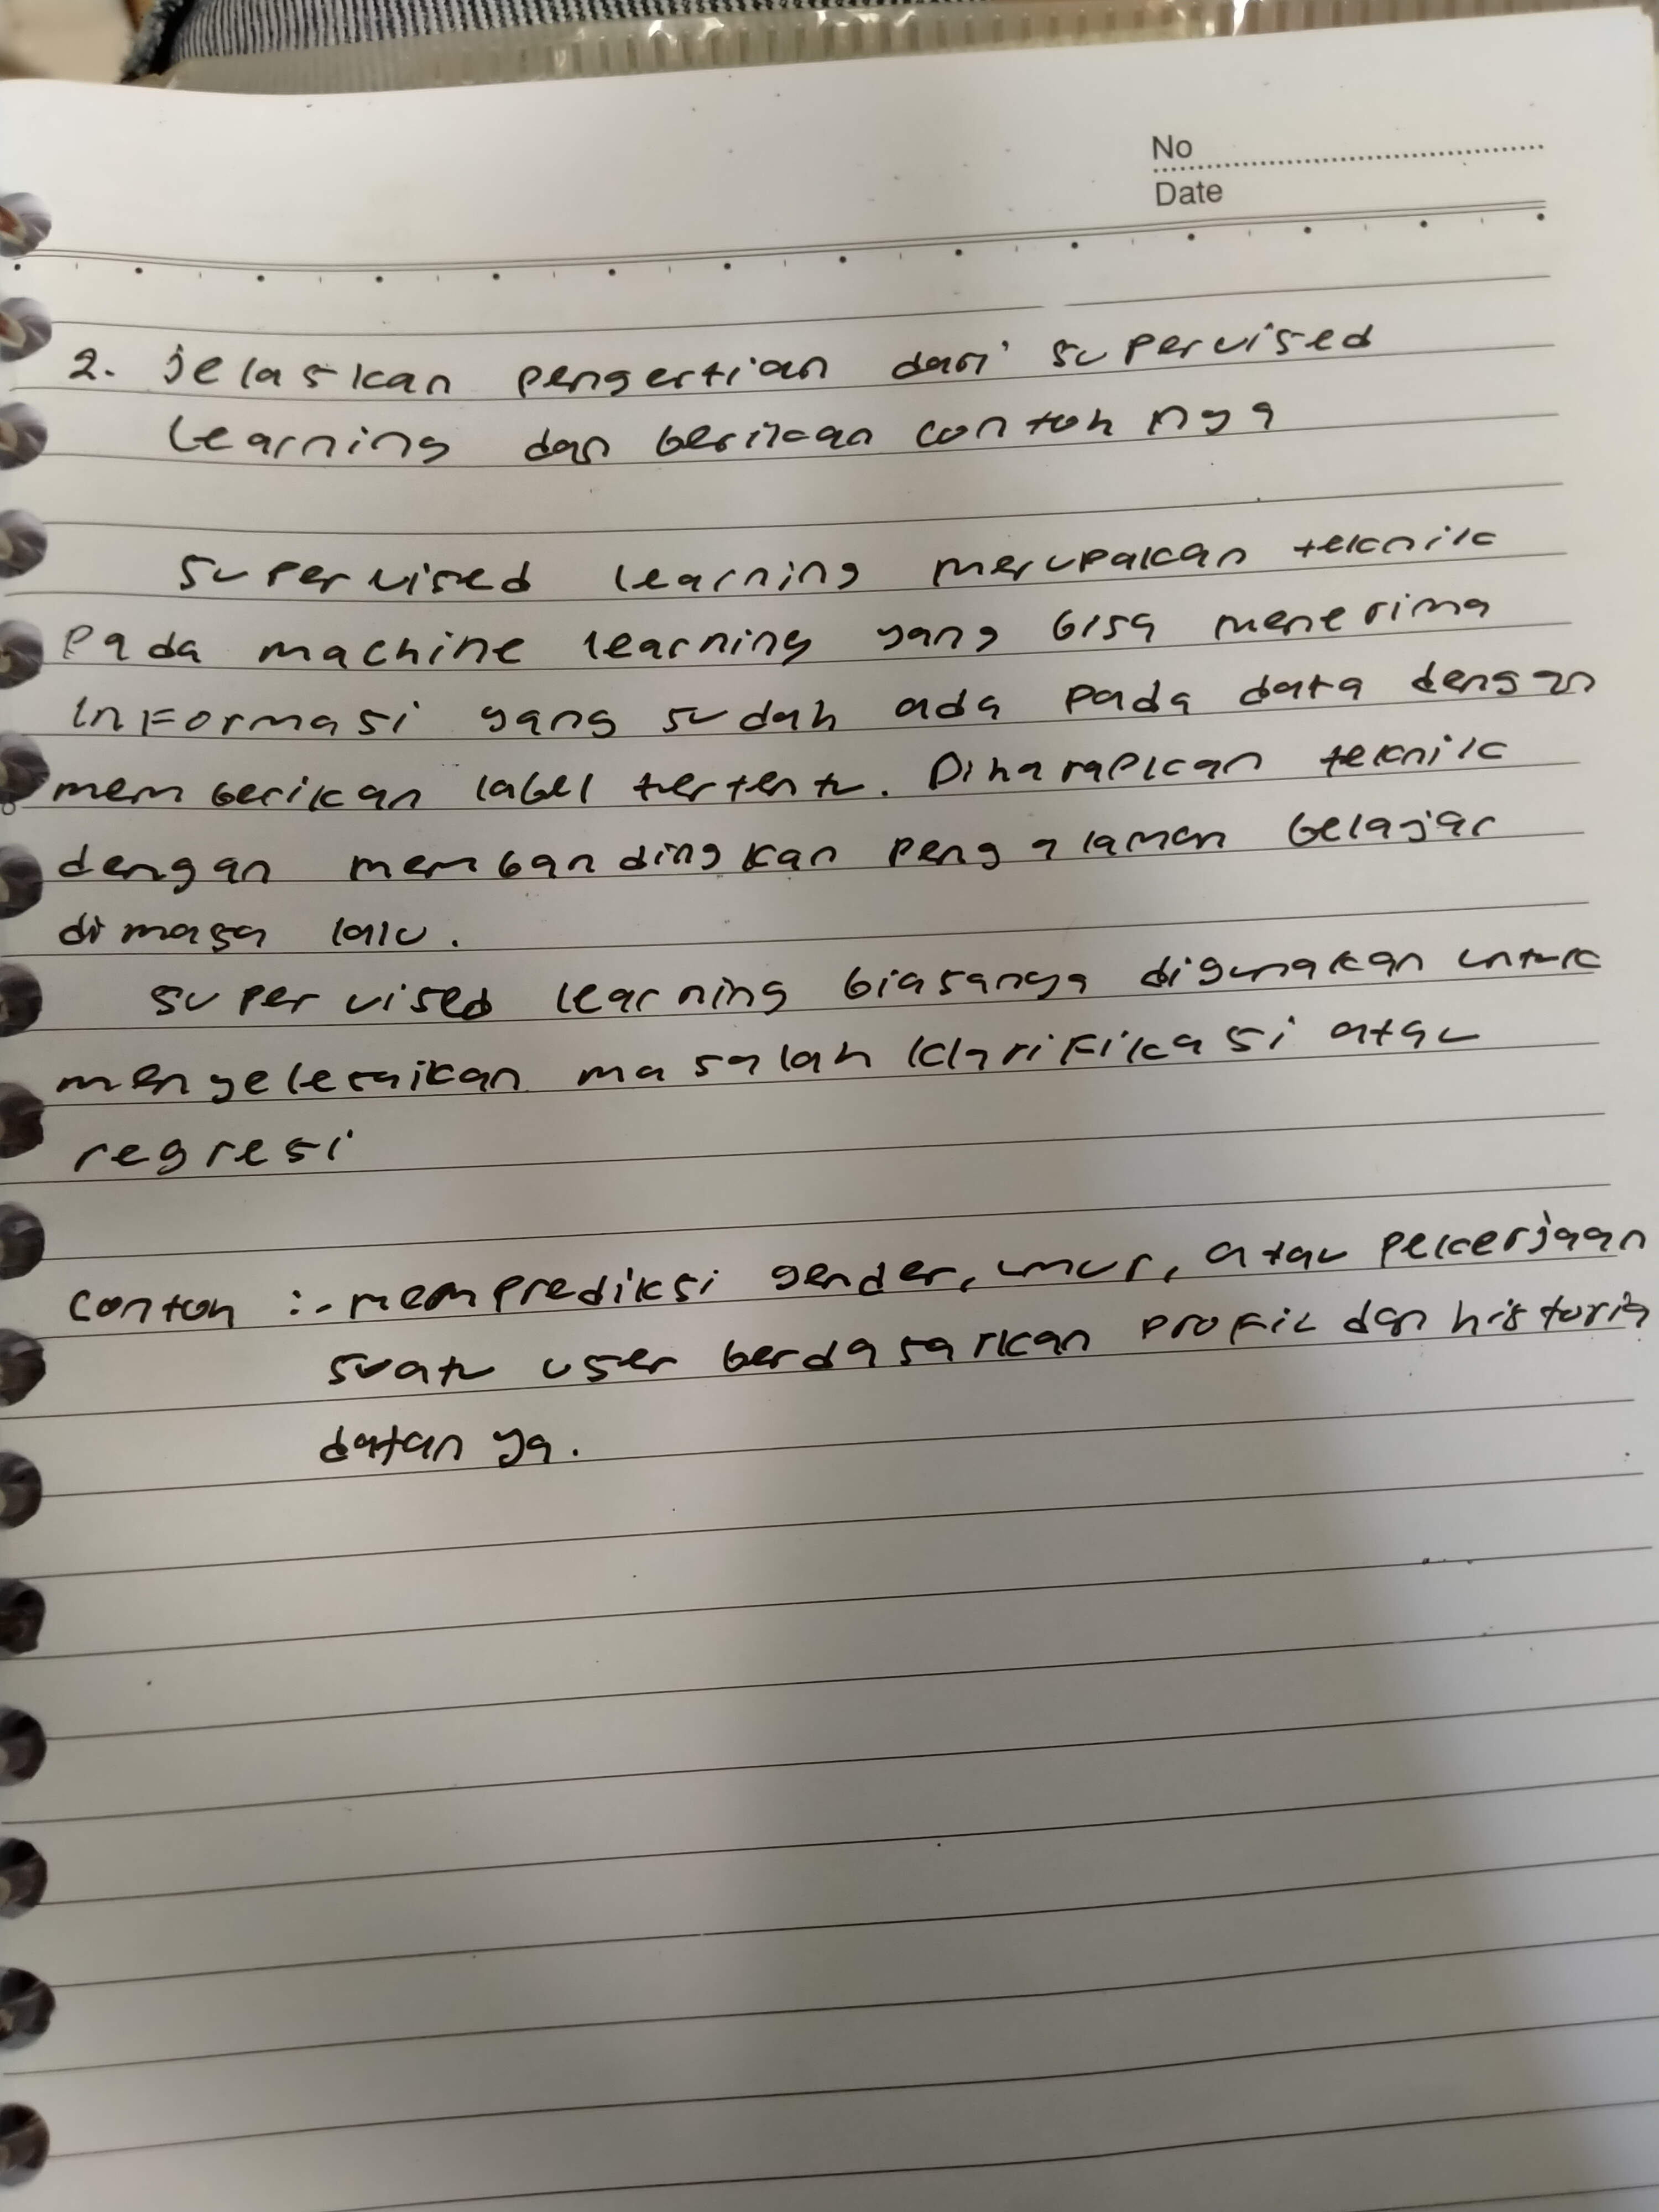 No
Date
2. jelaskan pengertian dari supervised
learning dan berikan contoh nya
supervised learning merupakan teknik
Pada machine learning yang bisa menerima
informasi yang sudah ada pada data dengan
memberikan label tertentu. Diharapkan teknik
dengan membandingkan pengalaman belajar
di masa lalu.
supervised learning biasanya digunakan untuk
menyelesaikan masalah klarifikasi atau
regresi
contoh :- memprediksi gender, umur, atau pekerjaan
suatu user berdasarkan profil dan historis
datanya.